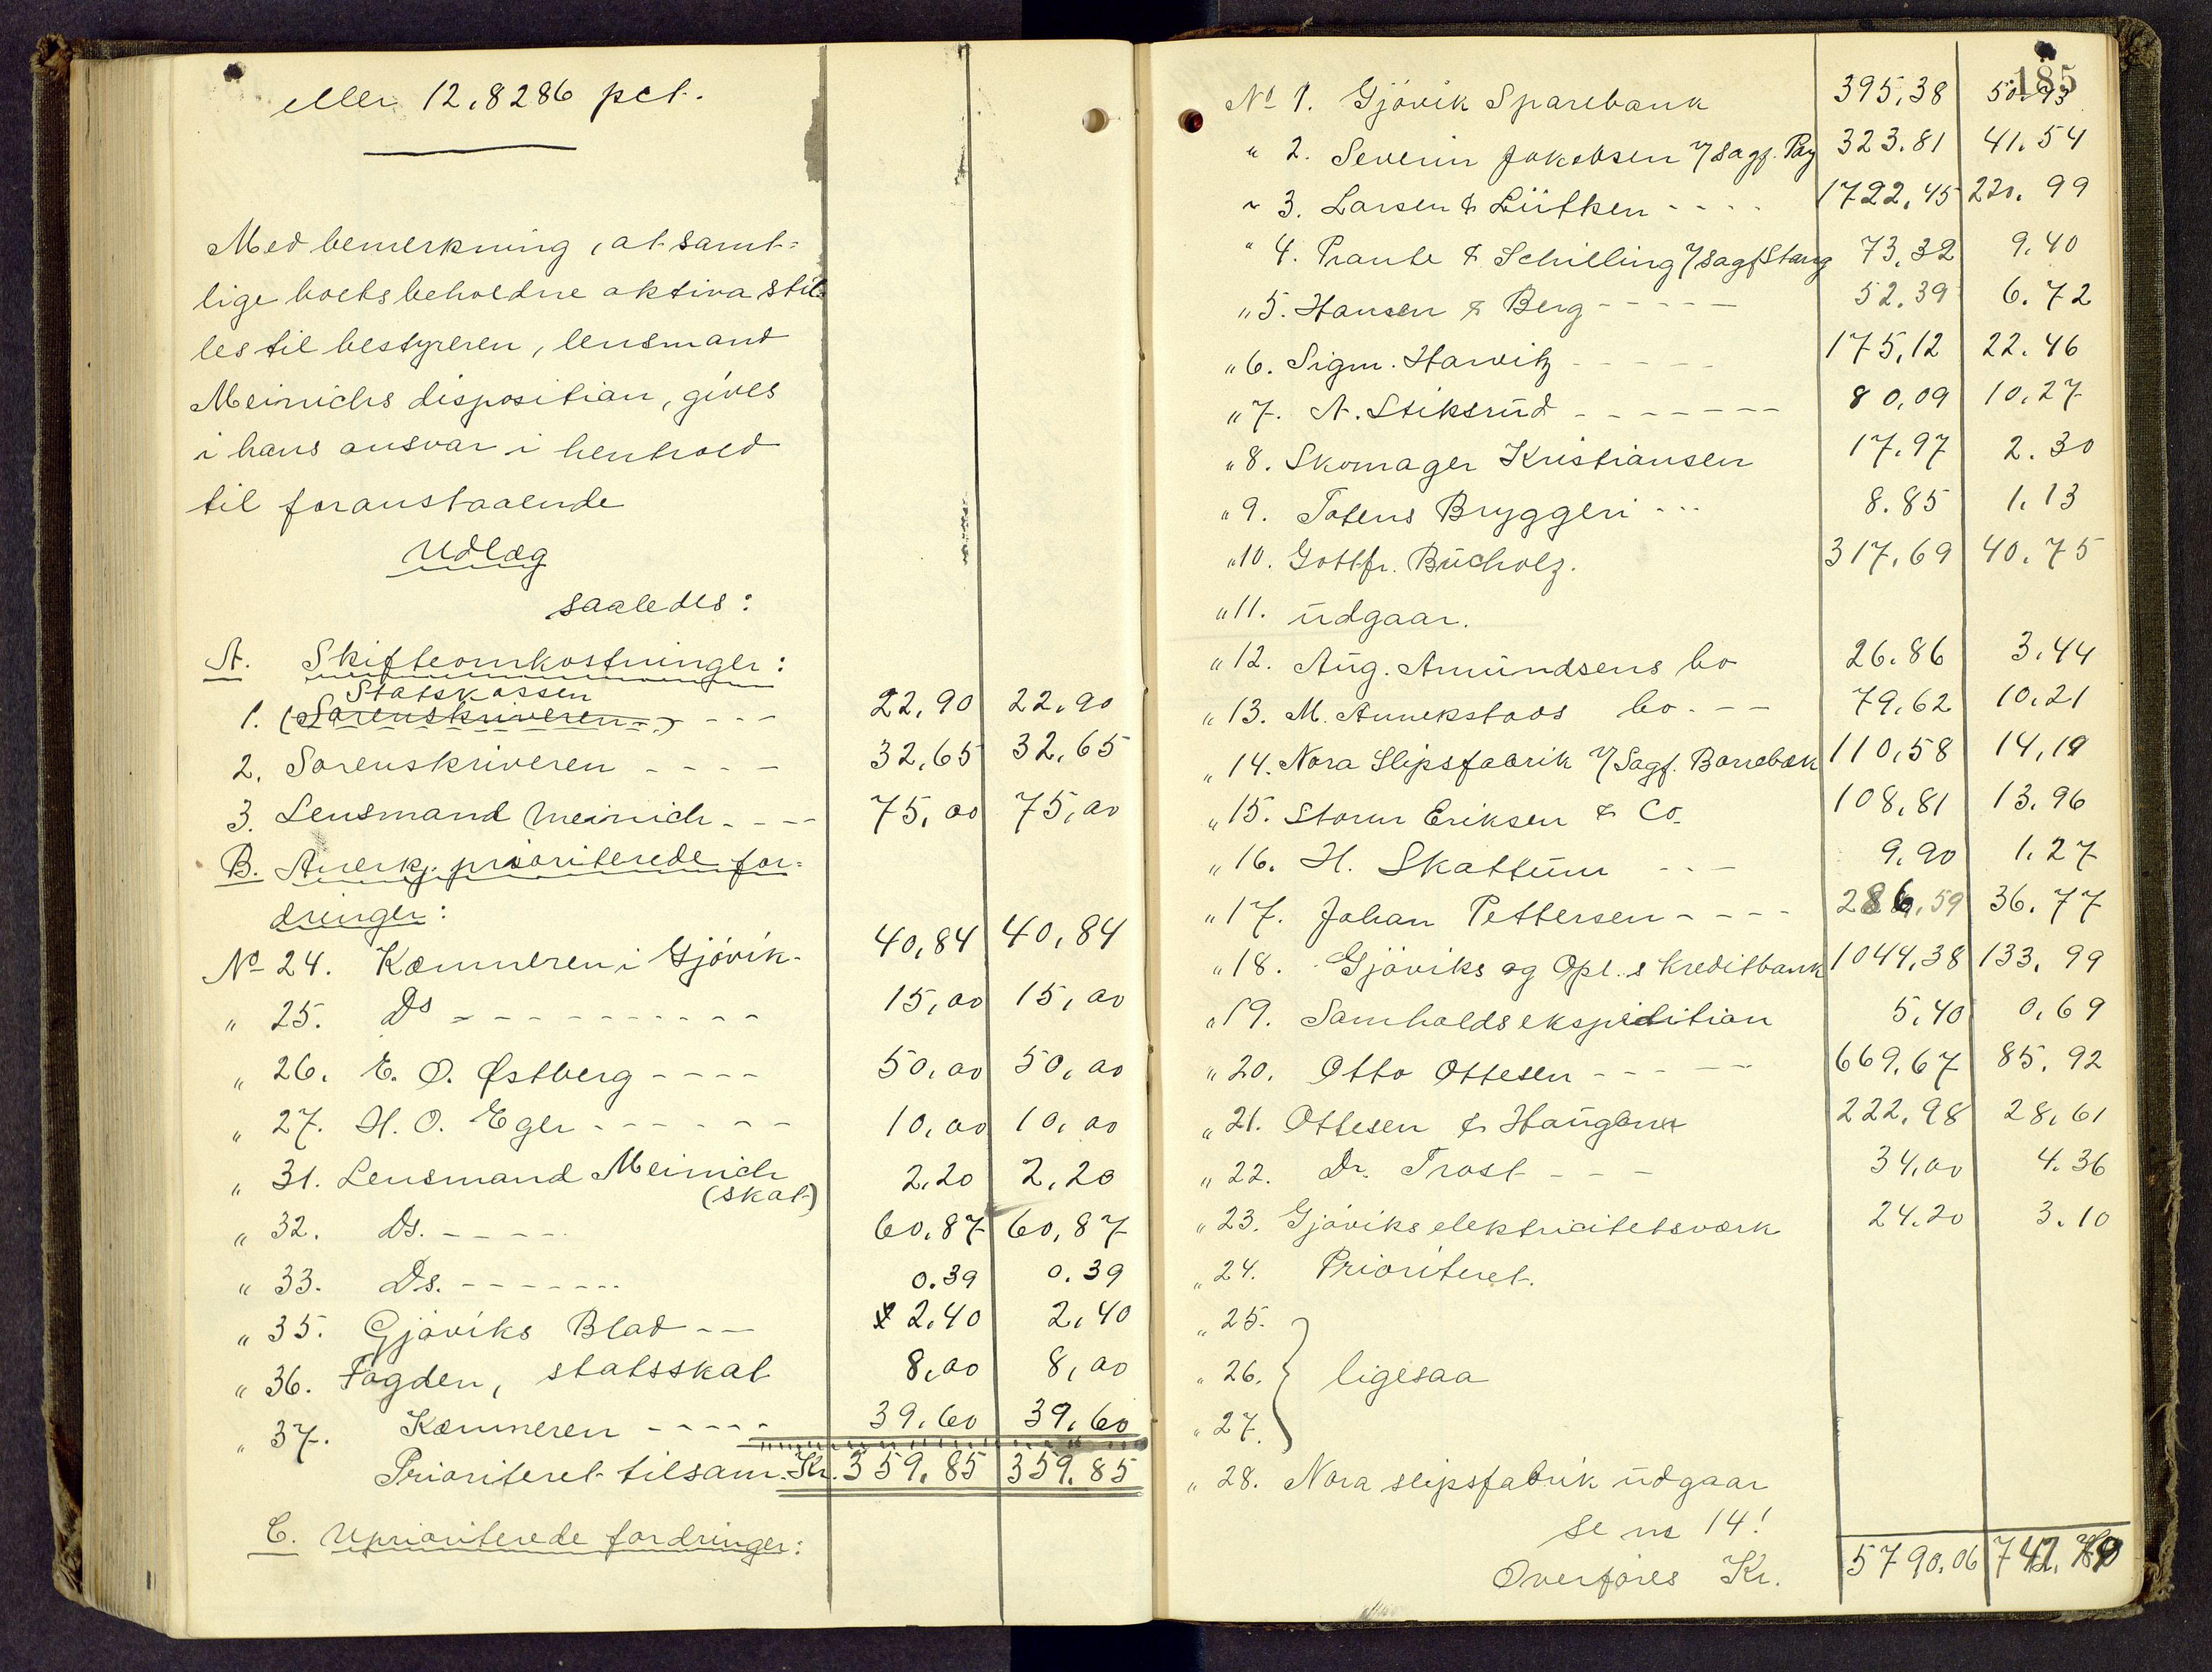 eller 12,8286 pct.
Med bemerkning, at samt-
lige boets beholdne aktiva stil-
les til bestyreren, lensmand
Meinichs disposition, gives
i hans ansvar i henhold
til foranstaaende
Udlæg
saaledes:
A. Skifteomkostninger:
Statskassen
1. (Sorenskriveren) - - - 22,90 22,90
2. Sorenskriveren - - - - 32,65 32,65
3. Lensmand Meinich - - - - 75,00 75,00
B. Anerkj. prioriterede for-
dringer:
No 24. Kæmneren i Gjövik - 40,84 40,84
" 25. Do - - - - - - - - - - 15,00 15,00
" 26. E. O. Østberg - - - - 50,00 50,00
" 27. H. O. Eger - - - - - - 10,00 10,00
" 31. Lensmand Meinich 2,20 2,20
(skat)
" 32. Ds. - - - - - 60,87 60,87
" 33. Ds. - - - - - - - 0.39 0.39
" 35. Gjøviks Blad - - 2,40 2,40
" 36. Fogden, statsskat 8,00 8,00
" 37. Kæmneren - - - - - 39,60 39,60
Prioriteret tilsam. Kr. 359.85 359.85
C. Uprioriterede fordringer:
185
No 1. Gjövik Sparebank 395,38 50.93
" 2. Severin Jakobsen v/ sagf. Pay 323.81 41.54
" 3. Larsen & Lütken - - - - 1722,45 220.99
" 4. Prante & Schilling v/ sagf Stang 73,32 9,40
" 5. Hansen & Berg - - - - - 52.39 6.72
" 6. Sigm. Harvitz - - - - - 175,12 22.46
" 7. A. Stiksrud - - - - - - - 80,09 10,27
" 8. Skomager Kristiansen 17.97 2.30
" 9. Totens Bryggeri - - - 8.85 1.13
" 10. Gottfr. Bucholz. 317,69 40.75
" 11. udgaar.
" 12. Aug. Amundsens bo 26.86 3.44
" 13. M. Annekstads bo - - - 79,62 10,21
" 14. Nora Slipsfabrik v/ Sagf. Borrebæk 110,58 14,19
" 15. Storm Eriksen & Co. 108,81 13.96
" 16. H. Skattum - - - 9,90 1.27
" 17. Johan Pettersen - - - - 286,59 36.77
" 18. Gjöviks og Opl.s kreditbank 1044,38 133,99
" 19. Samholds ekspedition 5,40 0,69
" 20. Otto Ottesen - - - - - 669,67 85,92
" 21. Ottesen & Haugen 222,98 28,61
" 22. Dr. Trost - - - 34,00 4.36
" 23. Gjøviks elektricitetsværk 24.20 3.10
" 24. Prioriteret.
" 25.
" 26. } ligesaa
" 27.
" 28. Nora slipsfabrik udgaar
se no 14!
Overføres Kr. 5790.06